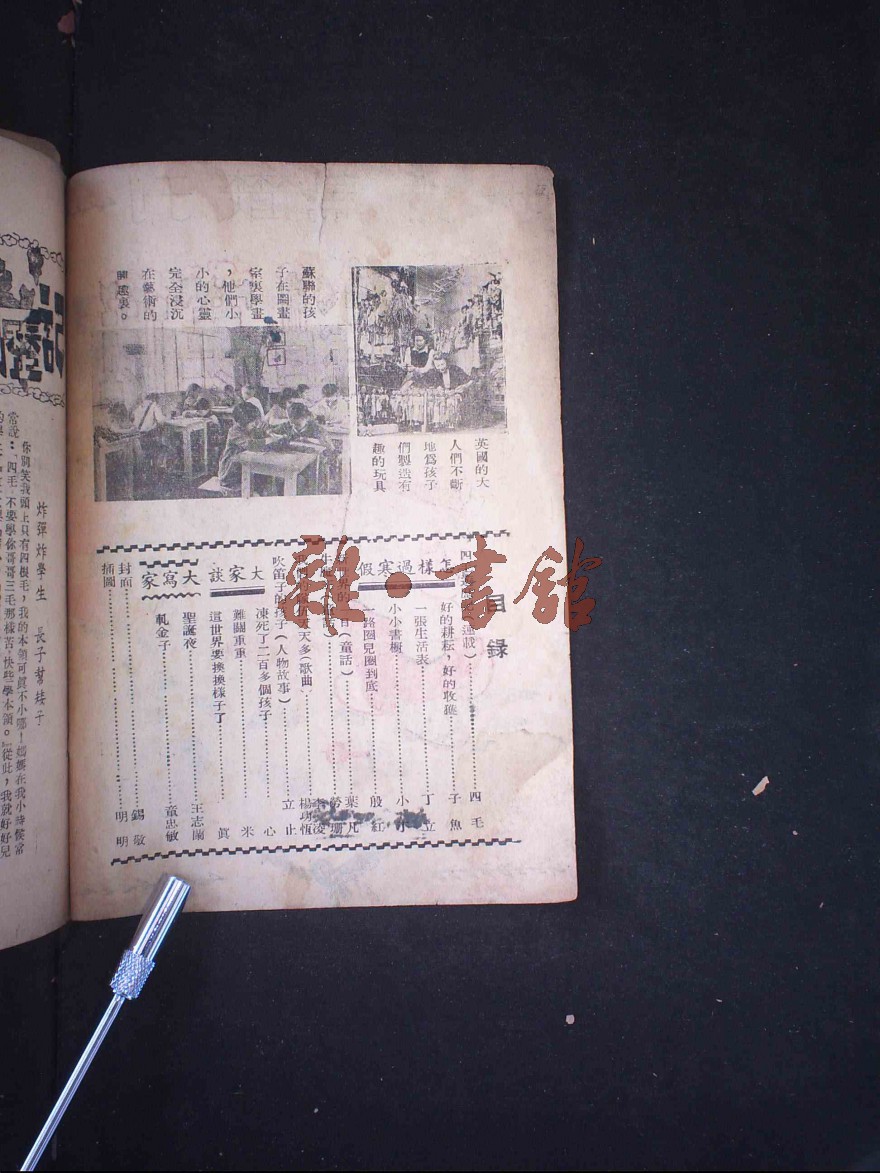 英國的大
人們不斷
地爲孩子
們製造有
趣的玩具
蘇聯的孩
子在圖畫
宗裏學畫
，他們小
小的心靈
完全浸沉
在藝術的
興趣裏。
目錄
四 連載）四毛
怎樣過寒假
好的耕耘，好的收穫 子魚
一張生活表 丁立
小小書櫥 小水
一路圈兒圈到底 殷紅
界的 日（童話） 葉凡
天多（歌曲） 楊功恆
吹笛子的孩子（人物故事） 立止
大家談
凍死了二百多個孩子 心
難關重重 米
這世界要換換樣子了 眞
大家寫
聖誕夜 王志蘭
軋金子 童忠敏
封面 錫敬
插圖 一明明
雜·書館
記
炸彈炸學生 長子幫矮子
你別笑我頭上只有四根毛，我的本領可眞不小哪！媽媽在我小時候常
常說：「四毛，不要學你哥哥三毛那樣苦，快些學本領。」從此，我就好好兒